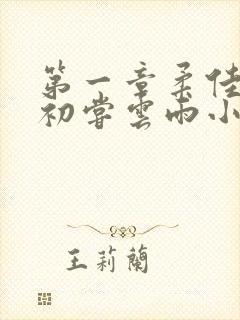 第一章柔佳
初尝雲雨小
王莉蘭